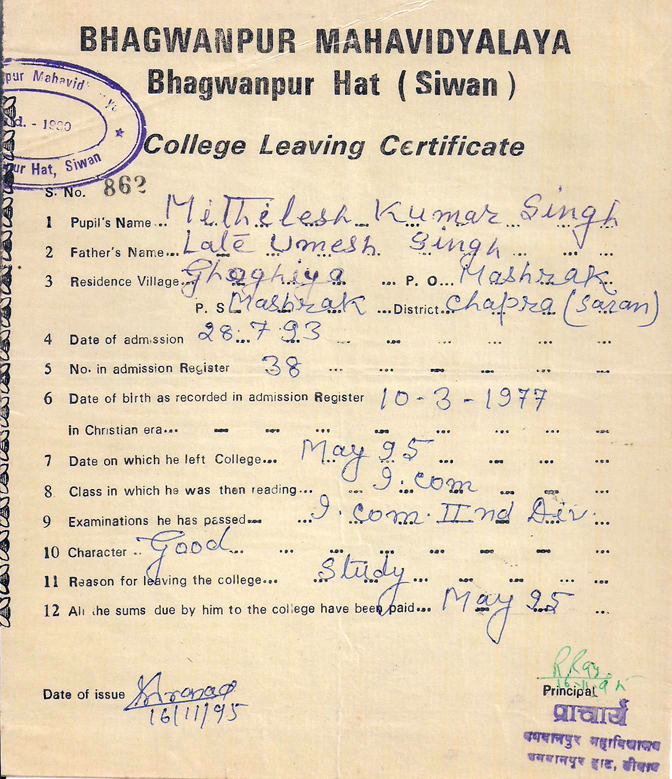 BHAGWANPUR MAHAVIDYALAYA
Bhagwanpur Hat ( Siwan )
pur Mahavid
d. - 1980
pur Hat, Siwan
College Leaving Certificate
S. No. 862
1 Pupil's Name... Mithilesh Kumar Singh
2 Father's Name... Late Umesh Singh
3 Residence Village... Ghoghiya ... P. O. Mashrak
P. S. Mashrak ... District... Chapra (Saran)
4 Date of admission 28.7.93
5 No. in admission Register 38
6 Date of birth as recorded in admission Register 10-3-1977
in Christian era...
7 Date on which he left College... May 95
8 Class in which he was then reading... I.com
9 Examinations he has passed... I.com. IInd Div.
10 Character .. Good
11 Reason for leaving the college... Study
12 All the sums due by him to the college have been paid... May 95
Date of issue
16/11/95
R. Ray
16.11.95
Principal
प्राचार्य
भगवानपुर महाविद्यालय
भगवानपुर हाट, सीवान